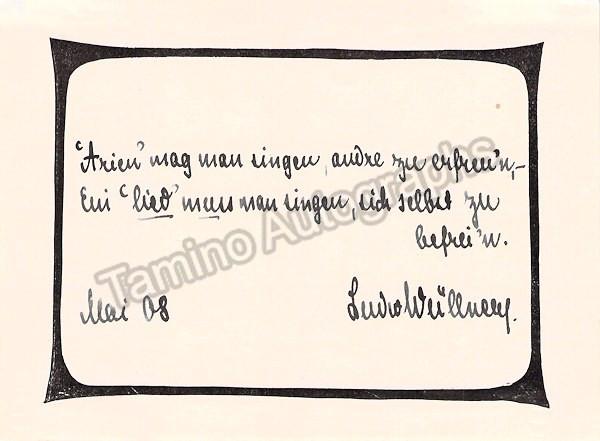 "Arien" mag man singen, andre zu erfreu'n,–
Ein "Lied" muss man singen, sich selbst zu
befrei'n.
Mai 08
Ludw Wüllner.
Tamino Autographs